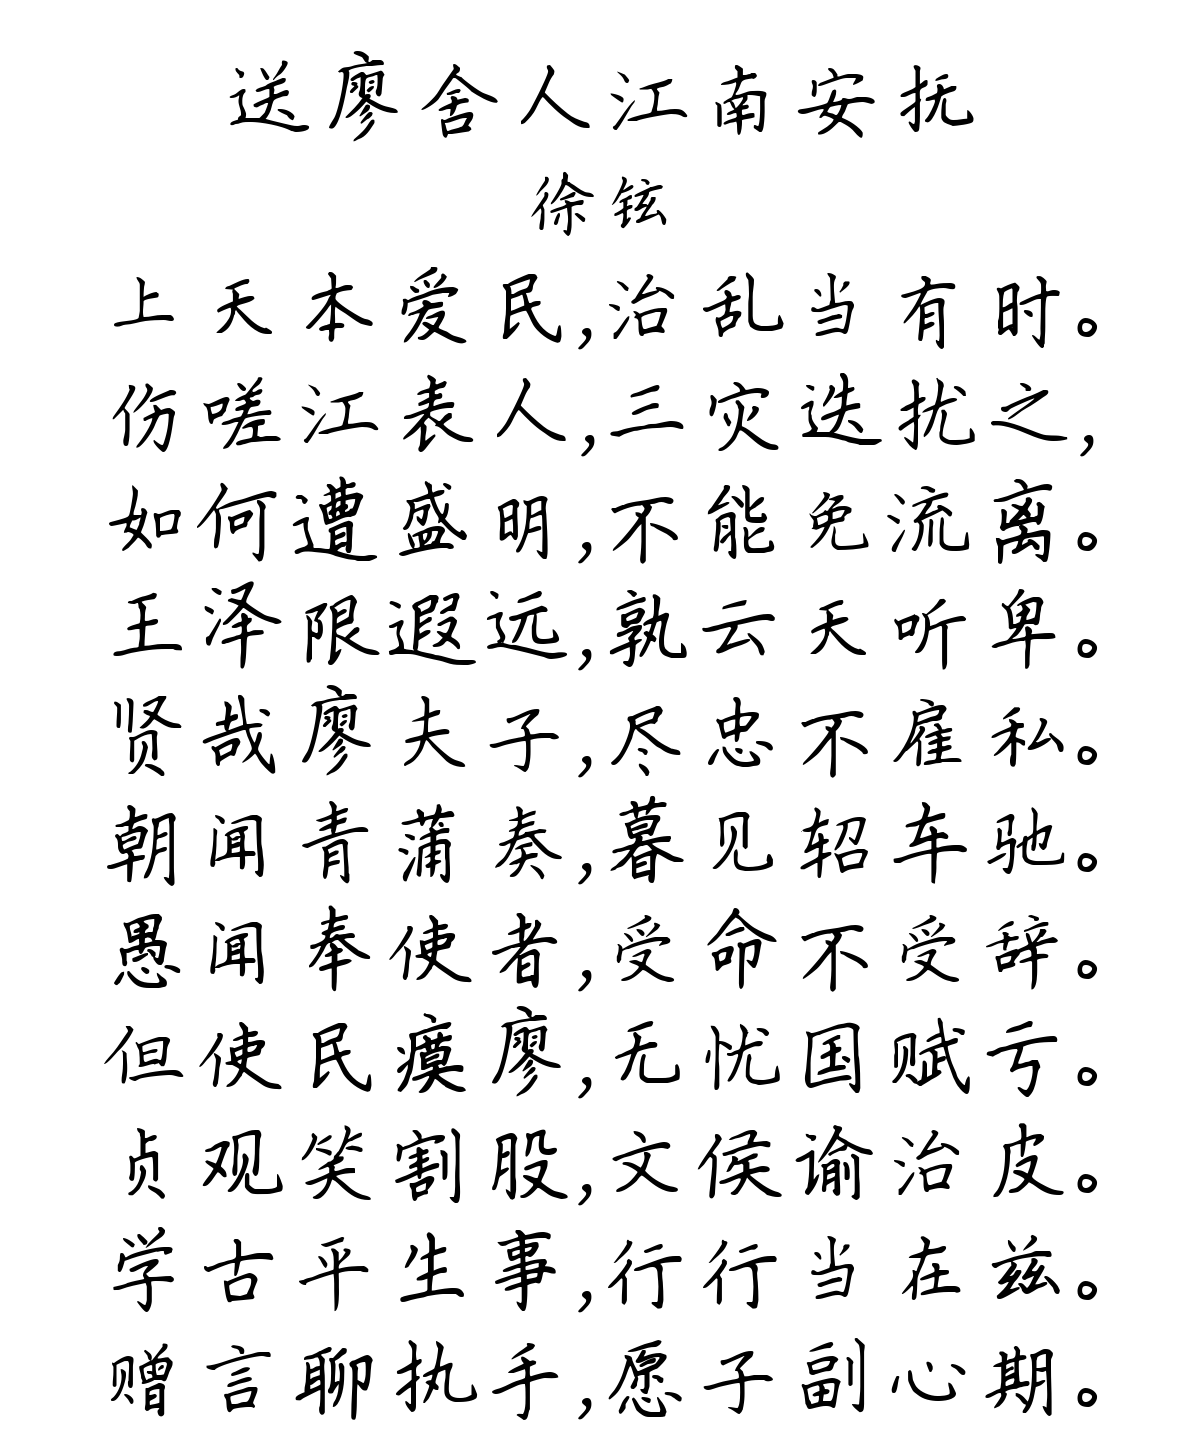 送廖舍人江南安抚
徐铉
上天本爱民,治乱当有时。
伤嗟江表人,三灾迭扰之,
如何遭盛明,不能免流离。
王泽限遐远,孰云天听卑。
贤哉廖夫子,尽忠不雇私。
朝闻青蒲奏,暮见轺车驰。
愚闻奉使者,受命不受辞。
但使民瘼廖,无忧国赋亏。
贞观笑割股,文侯谕治皮。
学古平生事,行行当在兹。
赠言聊执手,愿子副心期。